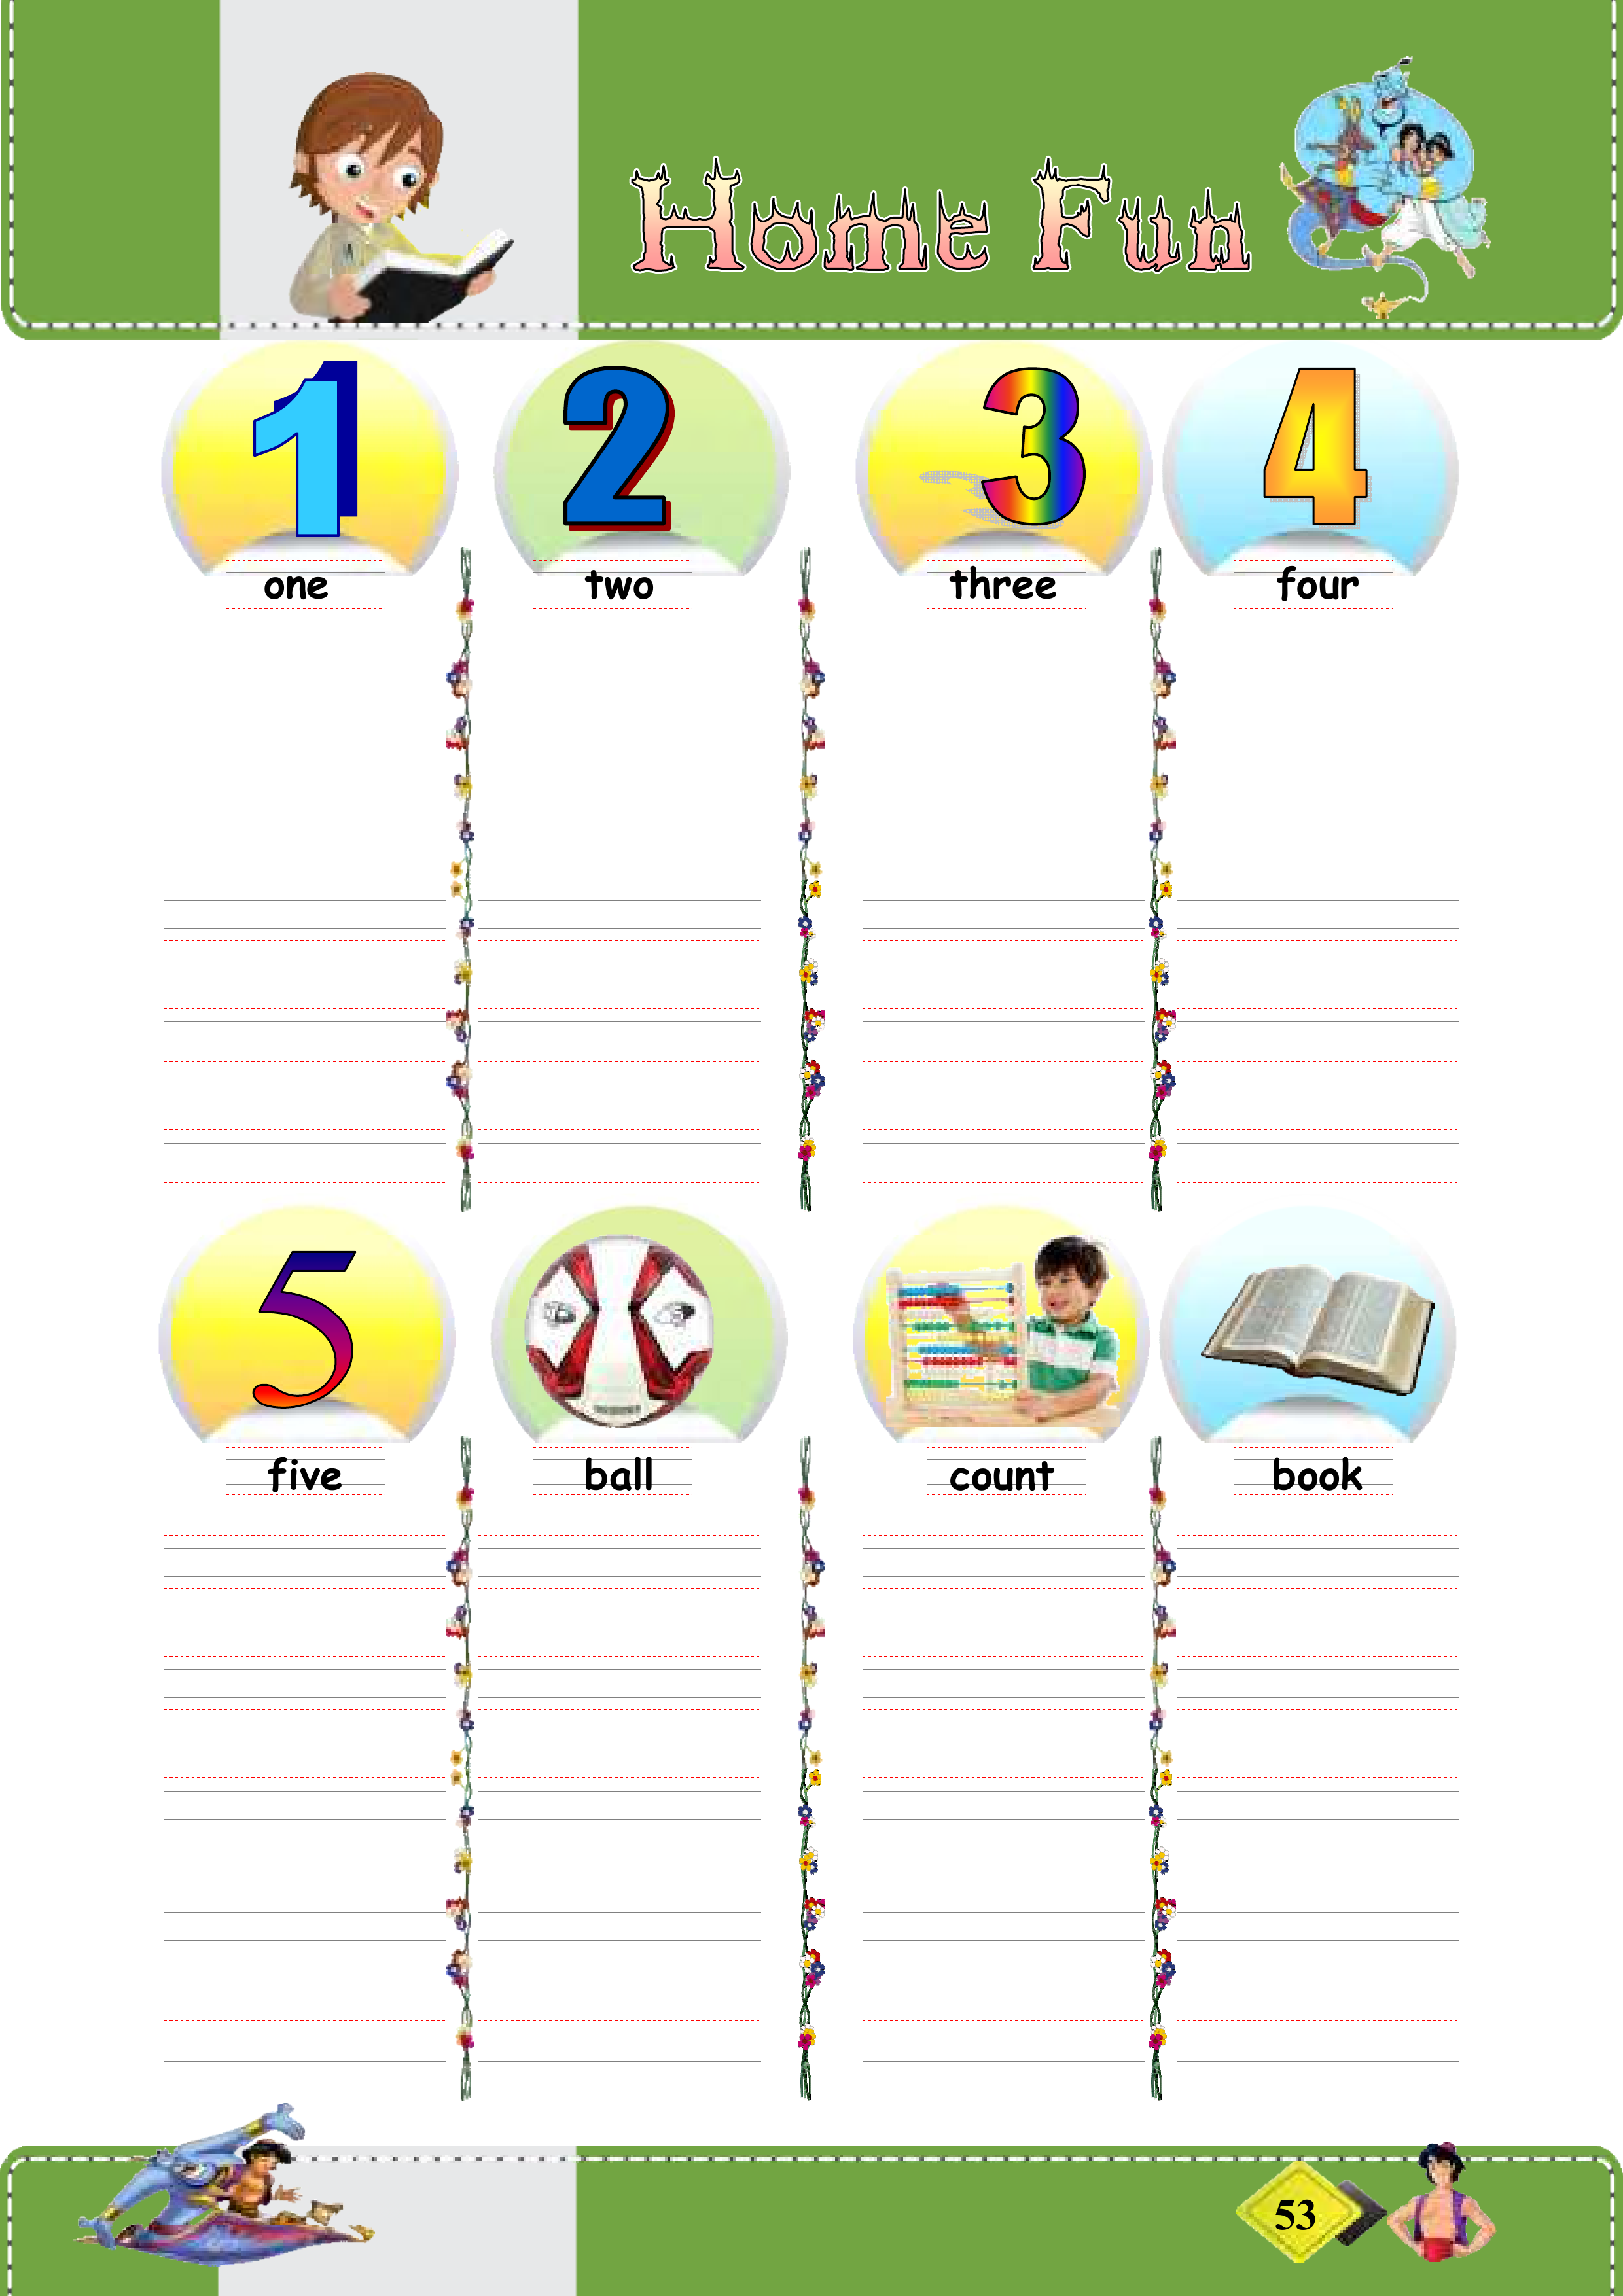 Home Fun
1 2 3 4
one two three four
5
five ball count book
53